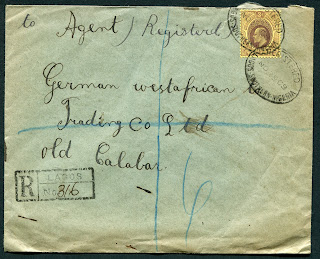 to Agent) Registered
German westafrican
Trading Co Ltd
Old Calabar
R LAGOS
No 316